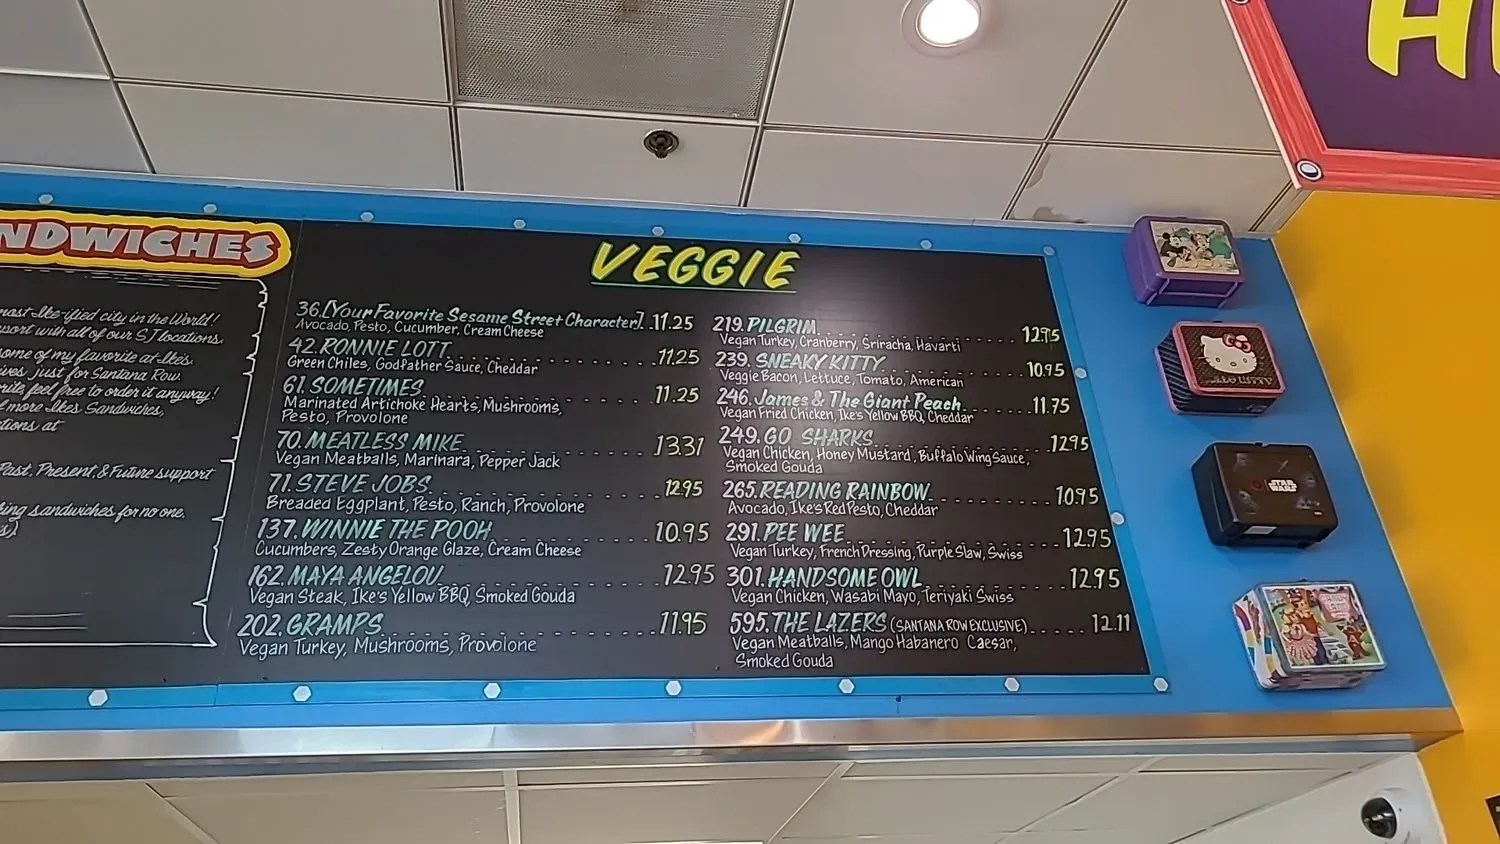 NDWICHES
most Ike-ified city in the World!
port with all of our SJ locations.
some of my favorite at Ike's.
ives just for Santana Row.
rite feel free to order it anyway!
f more Ikes Sandwiches,
tions at
Past, Present, & Future support
king sandwiches for no one.
VEGGIE
36.[Your Favorite Sesame Street Character]. 11.25
Avocado, Pesto, Cucumber, Cream Cheese
42. RONNIE LOTT 11.25
Green Chiles, Godfather Sauce, Cheddar
61. SOMETIMES 11.25
Marinated Artichoke Hearts, Mushrooms,
Pesto, Provolone
70. MEATLESS MIKE 13.31
Vegan Meatballs, Marinara, Pepper Jack
71. STEVE JOBS 12.95
Breaded Eggplant, Pesto, Ranch, Provolone
137. WINNIE THE POOH 10.95
Cucumbers, Zesty Orange Glaze, Cream Cheese
162. MAYA ANGELOU 12.95
Vegan Steak, Ike's Yellow BBQ, Smoked Gouda
202. GRAMPS 11.95
Vegan Turkey, Mushrooms, Provolone
219. PILGRIM 12.95
Vegan Turkey, Cranberry, Sriracha, Havarti
239. SNEAKY KITTY 10.95
Veggie Bacon, Lettuce, Tomato, American
246. James & The Giant Peach 11.75
Vegan Fried Chicken, Ike's Yellow BBQ, Cheddar
249. GO SHARKS 12.95
Vegan Chicken, Honey Mustard, Buffalo Wing Sauce,
Smoked Gouda
265. READING RAINBOW 10.95
Avocado, Ike's Red Pesto, Cheddar
291. PEE WEE 12.95
Vegan Turkey, French Dressing, Purple Slaw, Swiss
301. HANDSOME OWL 12.95
Vegan Chicken, Wasabi Mayo, Teriyaki Swiss
595. THE LAZERS (SANTANA ROW EXCLUSIVE) 12.11
Vegan Meatballs, Mango Habanero Caesar,
Smoked Gouda
HELLO KITTY
STAR WARS